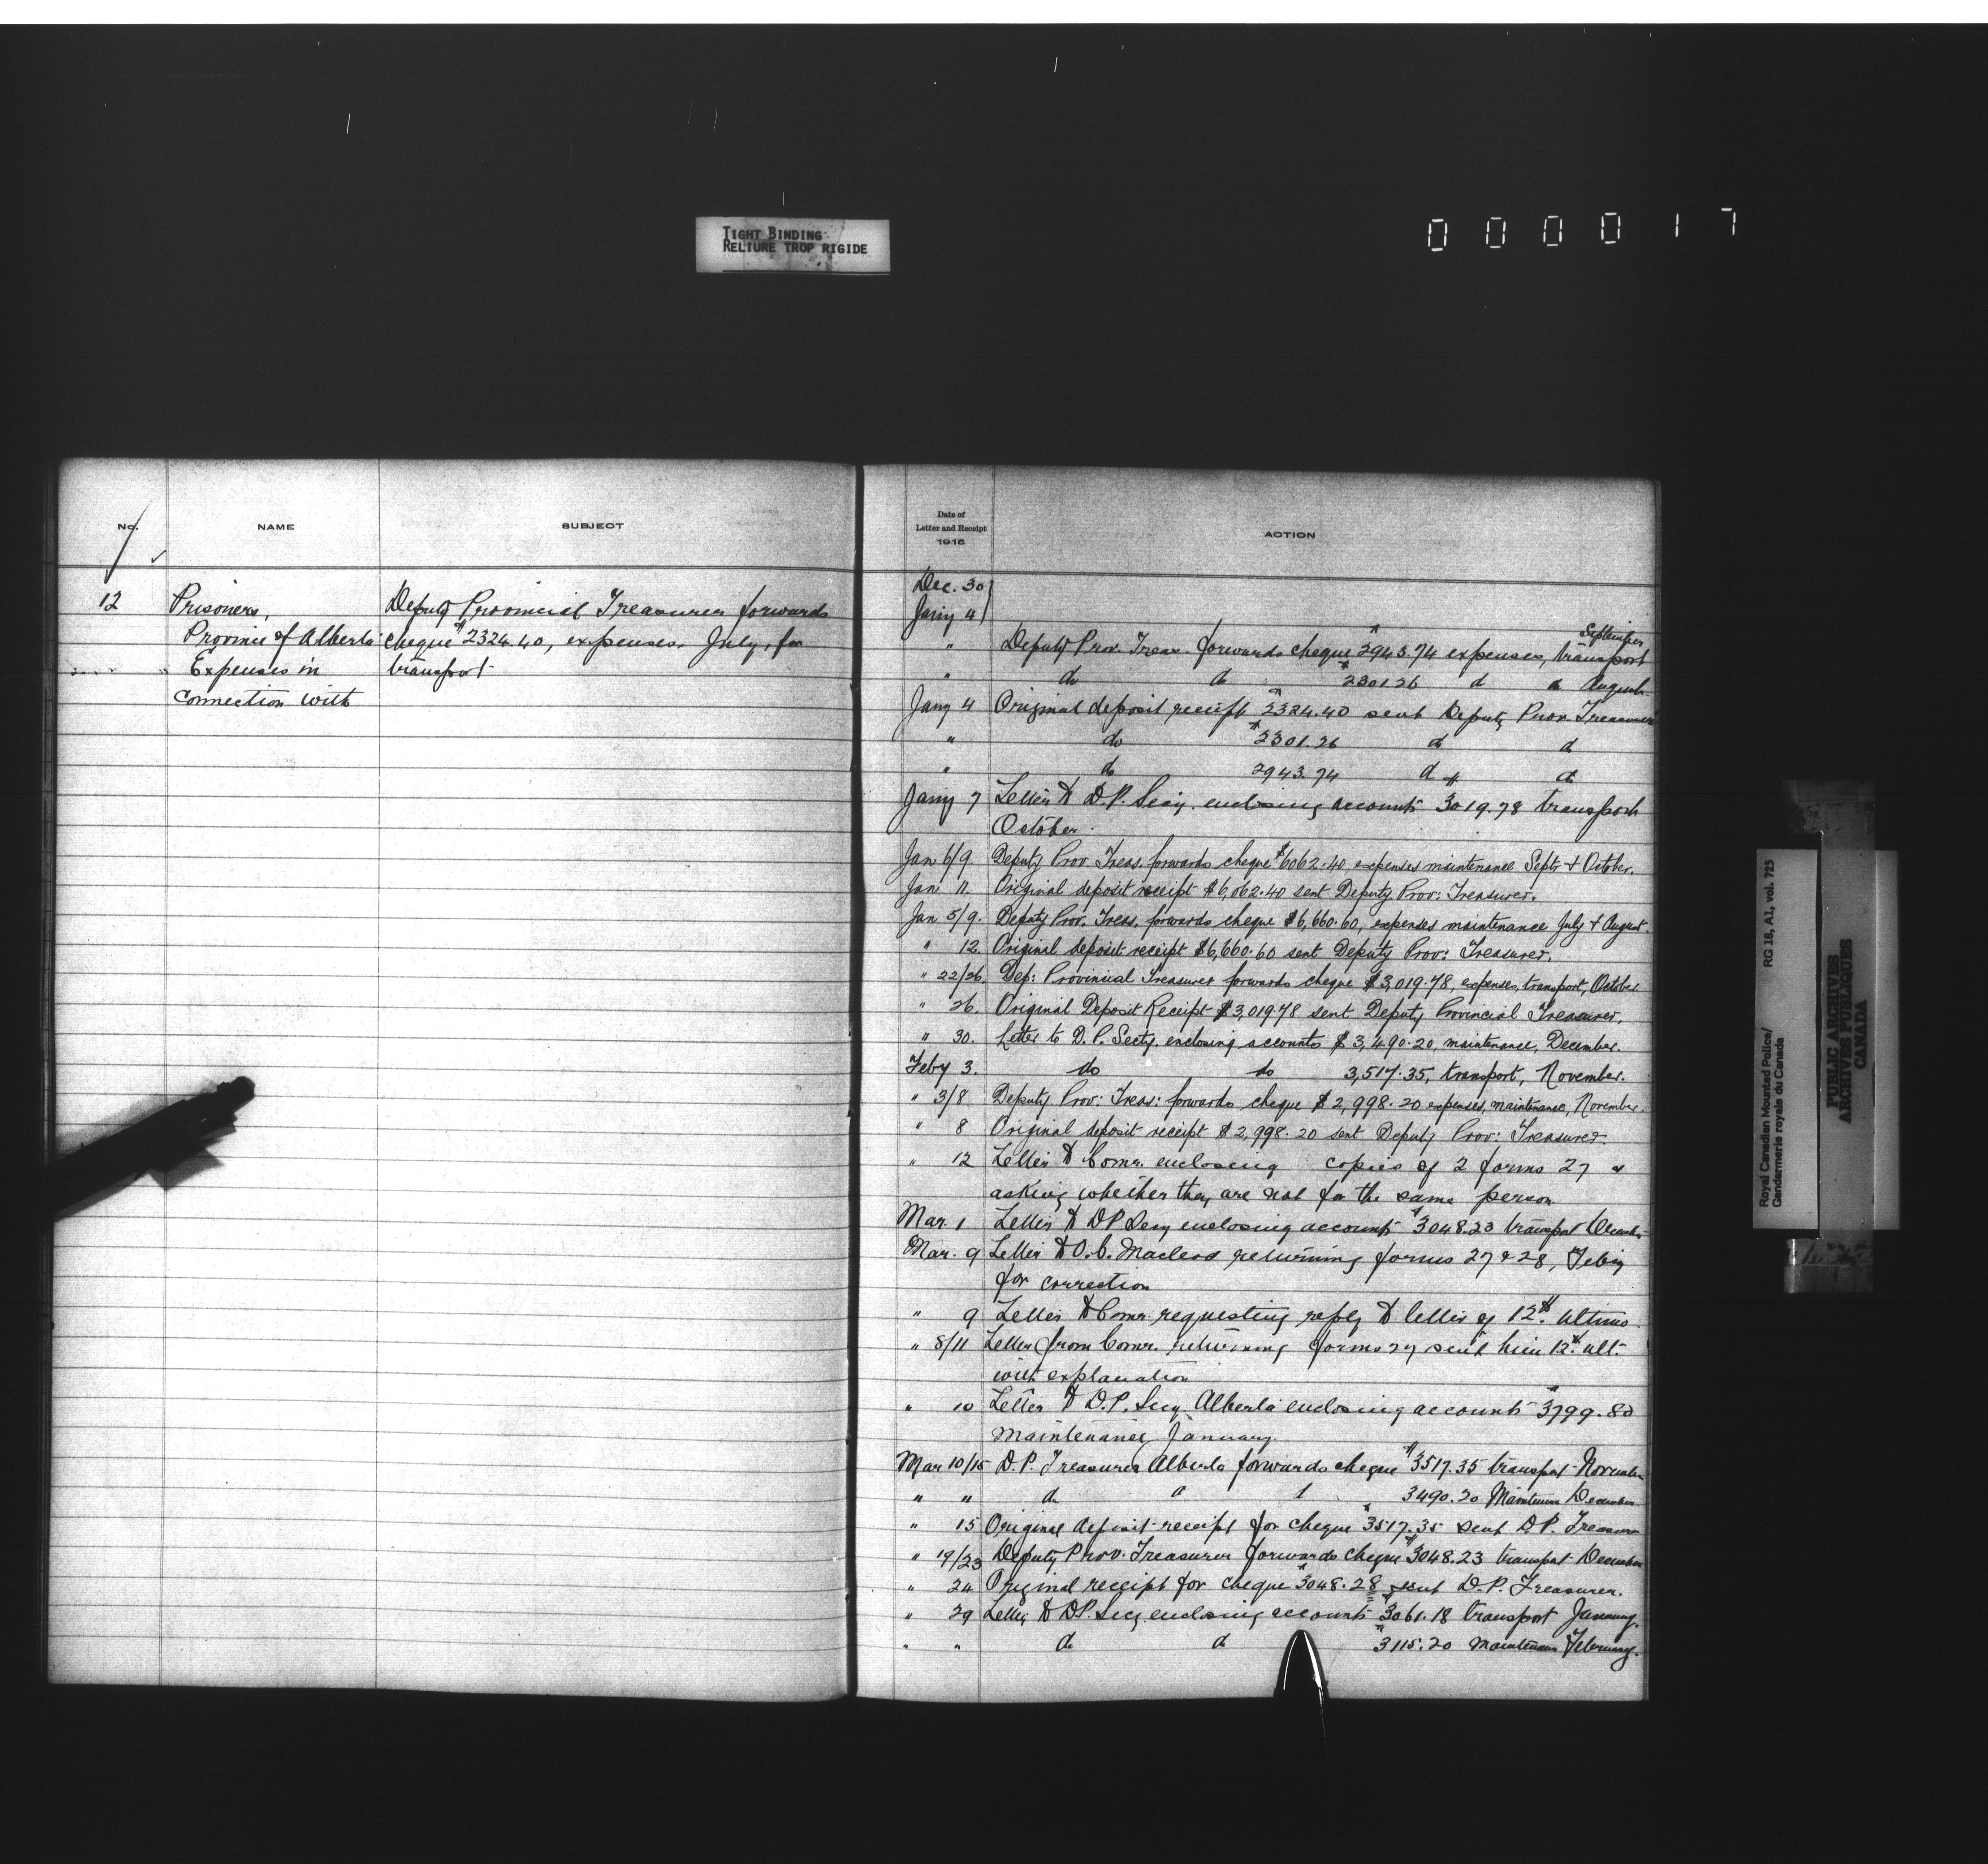 TIGHT BINDING
RELIURE TROP RIGIDE
000017
No.
NAME
SUBJECT
12
Prisoners,
Province of Alberta
Expenses in
connection with
Deputy Provincial Treasurer forwards
cheque $2324.40, expenses, July, for
transport
Date of
Letter and Receipt
1915
ACTION
Dec. 30
Jany 4
September
" Deputy Prov. Treas. forwards cheque $2943.74 expenses, transport
" do do $2301.26 d d August
Jany 4 Original deposit receipt $2324.40 sent Deputy Prov. Treasurer
" do $2301.26 d d
" do 2943.74 d d
Jany 7 Letter to D.P. Secy. enclosing accounts $3019.78 transport
October.
Jan 6/9. Deputy Prov. Treas. forwards cheque $6062.40 expenses maintenance Sept. + October.
Jan 11. Original deposit receipt $6,062.40 sent Deputy Prov: Treasurer.
Jan 5/9. Deputy Prov. Treas. forwards cheque $6,660.60, expenses maintenance July + August.
" 12. Original deposit receipt $6,660.60 sent Deputy Prov: Treasurer.
" 22/26. Dep: Provincial Treasurer forwards cheque $3,019.78, expenses, transport, October
" 26. Original Deposit Receipt $3,019.78 sent Deputy Provincial Treasurer.
" 30. Letter to D.P. Secty. enclosing accounts $3,490.20, maintenance, December.
Feby 3. do do 3,517.35, transport, November.
" 3/8 Deputy Prov: Treas: forwards cheque $2,998.20 expenses, maintenance, November.
" 8 Original deposit receipt $2,998.20 sent Deputy Prov: Treasurer.
" 12 Letter to Comr. enclosing copies of 2 forms 27 &
asking whether they are not for the same person
Mar. 1 Letter to DP Secy enclosing accounts $3048.23 transport December
Mar. 9 Letter to O.C. Macleod returning forms 27 & 28, Feby
for correction
" 9 Letter to Comr. requesting reply to letter of 12th ultimo.
" 8/11 Letter from Comr. returning forms 27 sent him 12th ult.
with explanation
" 10 Letter to D.P. Secy. Alberta enclosing accounts $3799.80
maintenance, January.
Mar 10/15 D.P. Treasurer Alberta forwards cheque $3517.35 transport November
" " d d 3490.20 Maintenance December
" 15 Original deposit receipt for cheque $3517.35 sent D.P. Treasurer
" 19/23 Deputy Prov. Treasurer forwards cheque $3048.23 transport December
" 24 Original receipt for cheque $3048.28 sent D.P. Treasurer.
" 29 Letter to DP. Secy. enclosing accounts $3061.18 transport January.
" " do do $3115.20 maintenance February.
Royal Canadian Mounted Police/
Gendarmerie royale du Canada
RG 18, A1, vol. 725
PUBLIC ARCHIVES
ARCHIVES PUBLIQUES
CANADA